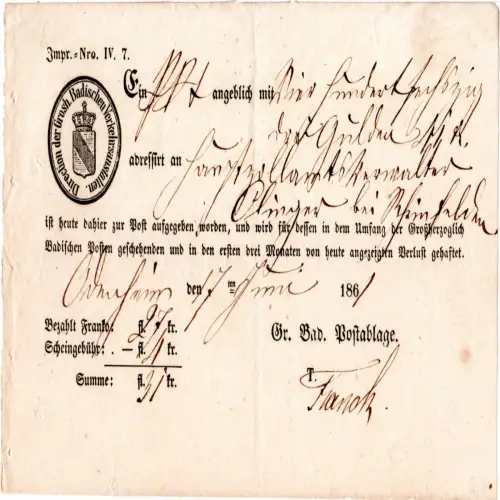 Impr.=Nro. IV. 7.
Direction der Grosh. Badischen Verkehrsanstalten.
Ein Pkt angeblich mit Vier hundert sechszig
drei Gulden
adressirt an Hauptzollamtsverwalter
Olinger bei Rheinfelden
ist heute dahier zur Post aufgegeben worden, und wird für dessen in dem Umfang der Großherzoglich
Badischen Posten geschehenden und in den ersten drei Monaten von heute angezeigten Verlust gehaftet.
Odenheim den 17 ten Juni 1861
Bezahlt Franko: fl. 27 kr.
Scheingebühr: — fl. 4 kr.
Summe: fl. 31 kr.
Gr. Bad. Postablage.
T.
Franck.